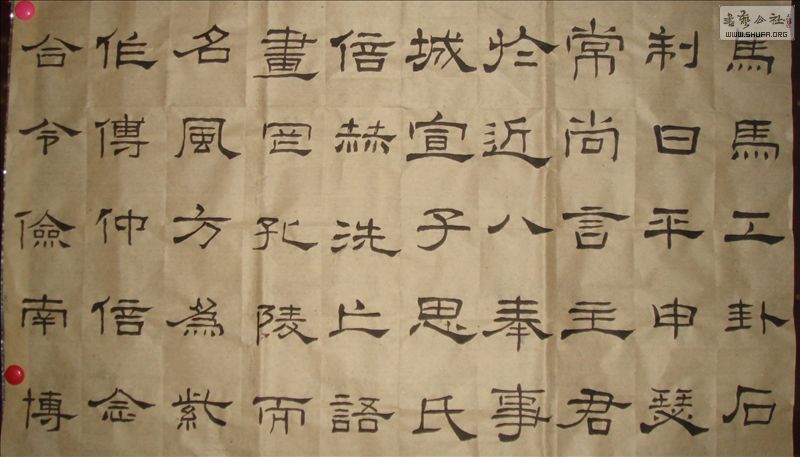 馬馬工卦石
制日平申瑟
常尚言主君
於近八奉事
城宣子思氏
倍赫洗亡語
畫罡孔陵而
名風方為紫
作傅仲信念
合令儉南博
書藝公社
WWW.SHUFA.ORG